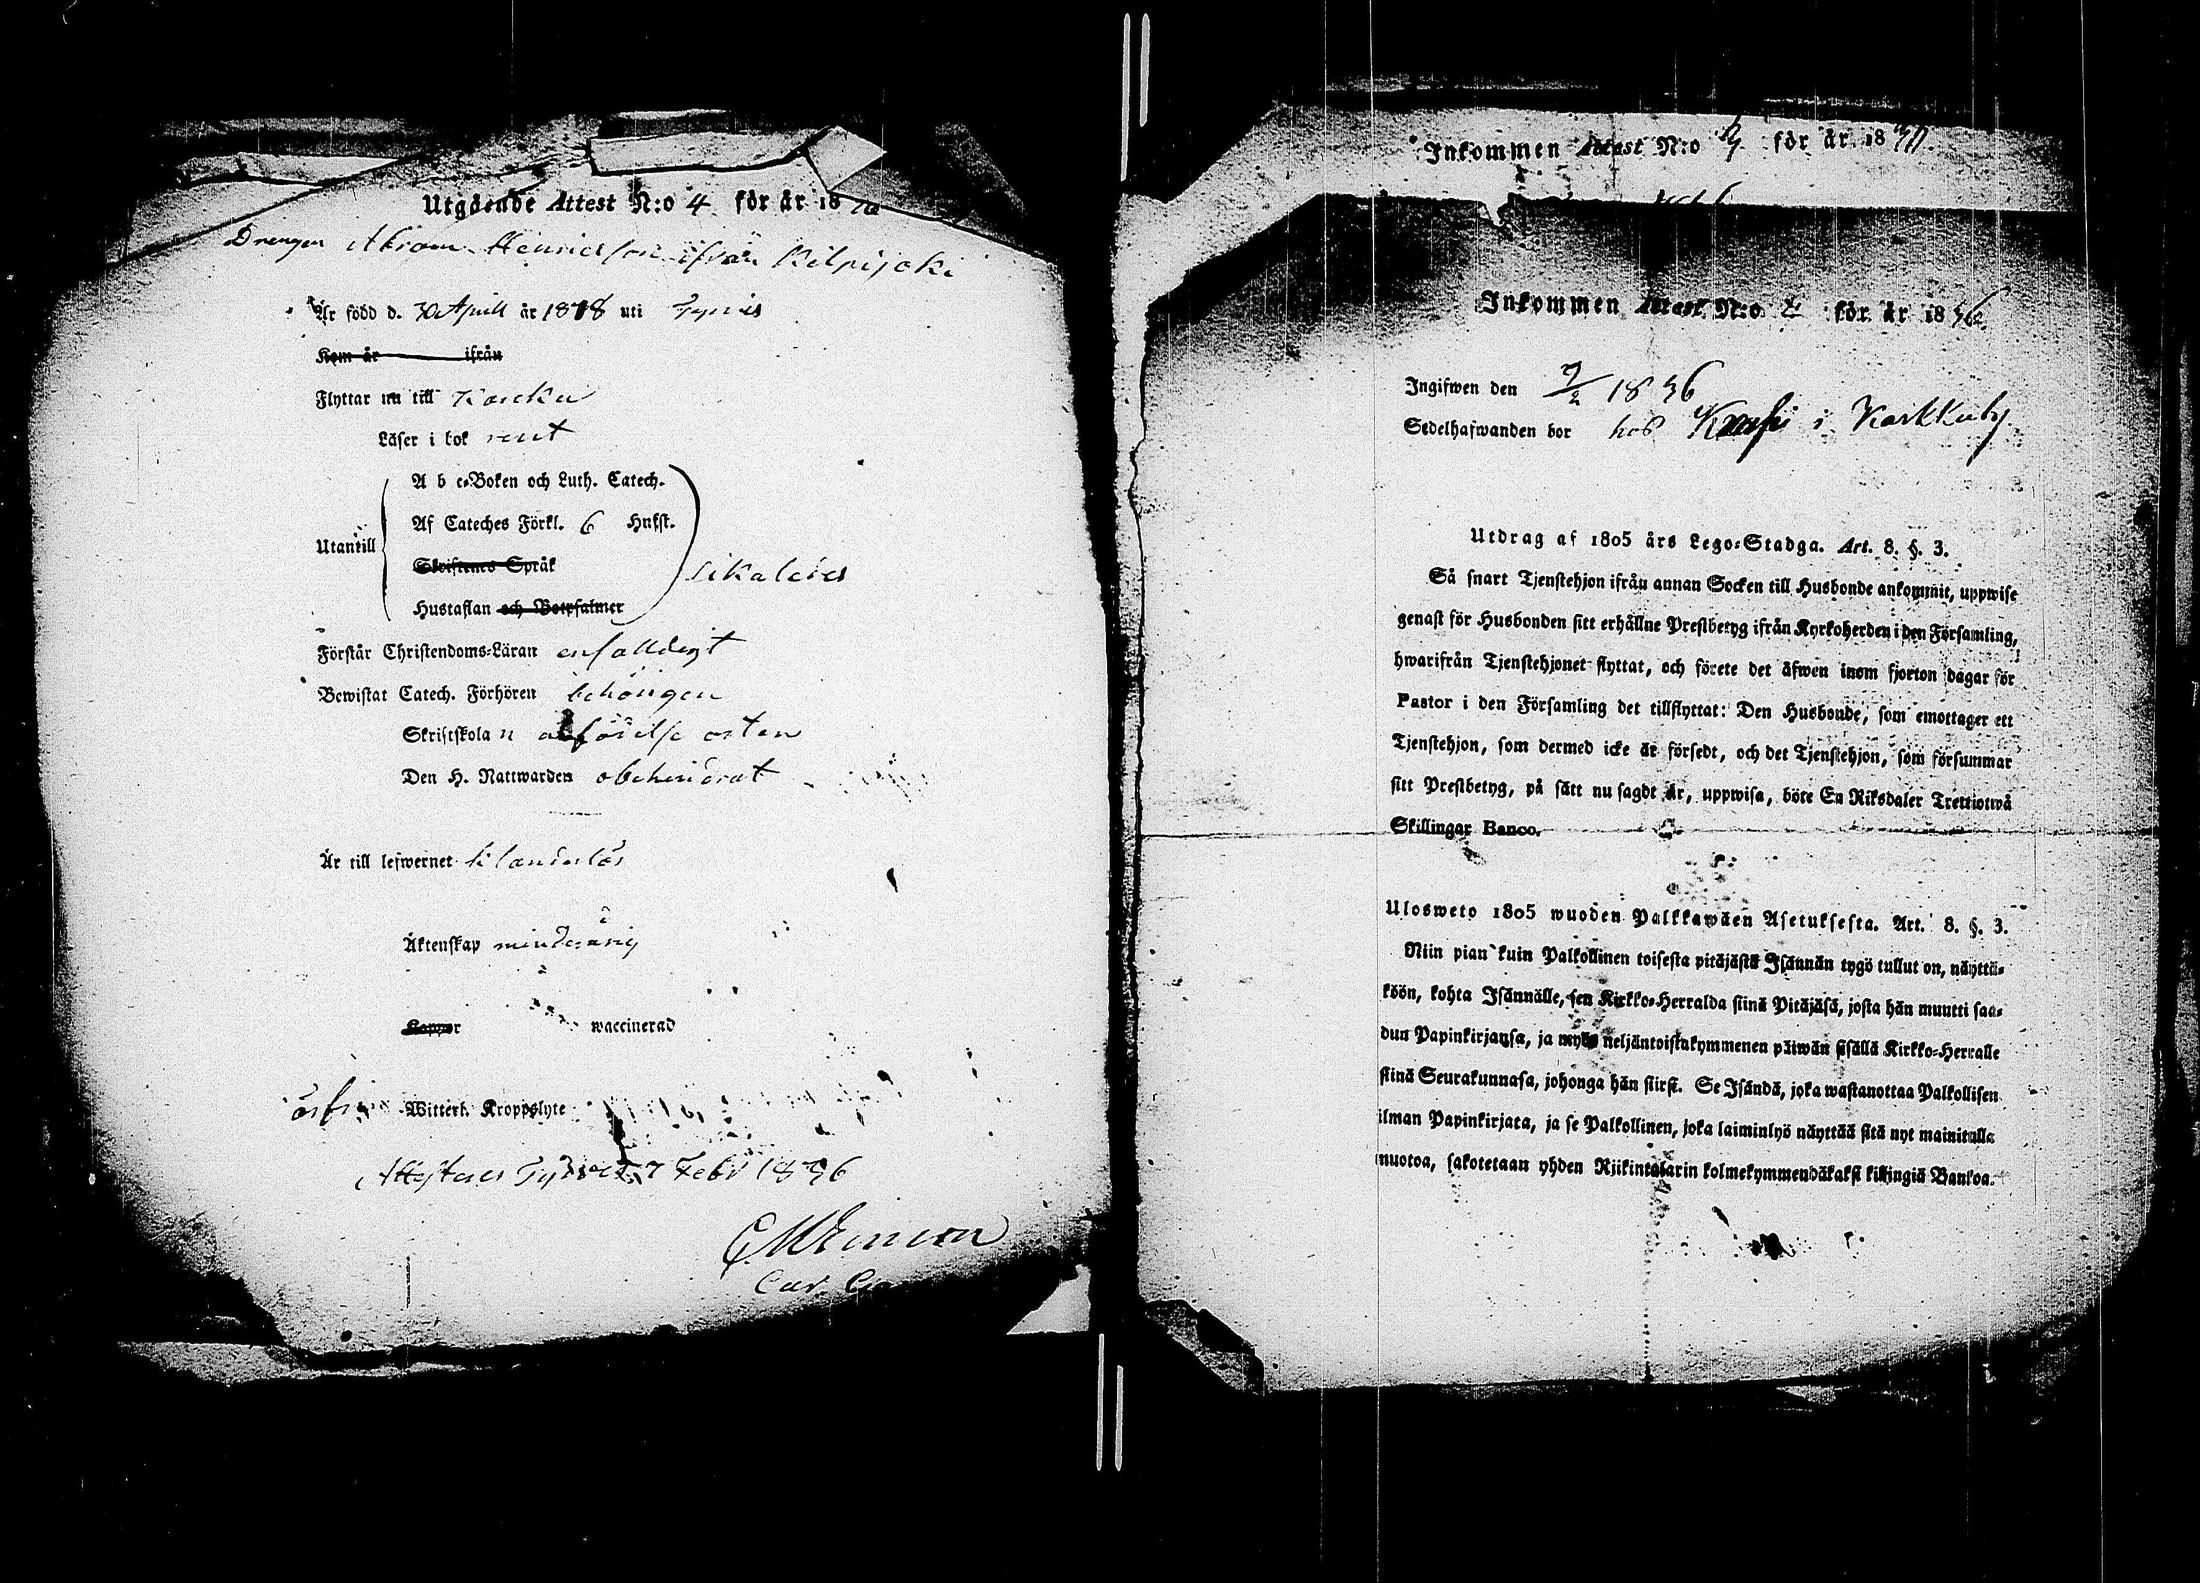 Utgående Attest N:o 4 för år 18
Drengen Abram Henricsson ifrån Kilpijoki
Är född d. 30 April år 1818 uti Tyrvis
Kom år ifrån
Flyttar nu till Karcku
Läser i bok rent
A b c-Boken och Luth. Catech.
Af Cateches Förkl. 6 Hufst.
Utantill
Skriftenes Språk
likaledes
Hustaflan och Botpsalmer
Förstår Christendoms-Läran enfalldigt
Bewistat Catech. Förhören behörigen
Skriftskolan
Den H. Nattwarden obehindrat
Är till lefwernet klanderlös
Äktenskap minderårig
Koppor waccinerad
Witterl. Kroppslyte
Attesteres Tyrvis 7 Febr 1836
Inkommen Attest N:o för år 18
Inkommen Attest N:o 4 för år 1836
Ingifwen den 7/2 1836
Sedelhafwanden bor hos i Karkkuby
Utdrag af 1805 års Lego-Stadga. Art. 8. §. 3.
Så snart Tjenstehjon ifrån annan Socken till Husbonde ankommit, uppwise
genast för Husbonden sitt erhållne Prestbetyg ifrån Kyrkoherden i den Församling,
hwarifrån Tjenstehjonet flyttat, och förete det äfwen inom fjorton dagar för
Pastor i den Församling det tillflyttat: Den Husbonde, som emottager ett
Tjenstehjon, som dermed icke är försedt, och det Tjenstehjon, som försummar
sitt Prestbetyg, på sätt nu sagdt är, uppwisa, böte En Riksdaler Trettiotwå
Skillingar Banco.
Ulosweto 1805 wuoden Palkkawäen Asetuksesta. Art. 8. §. 3.
Niin pian kuin Palkollinen toisesta pitäjästä Isännän tygö tullut on, näyttä-
köön, kohta Isännälle, sen Kirkko-Herralda siinä Pitäjäsä, josta hän muutti saa-
dun Papinkirjansa, ja myös neljäntoistakymmenen päiwän sisällä Kirkko-Herralle
siinä Seurakunnasa, johonga hän siirsi. Se Isändä, joka wastanottaa Palkollisen
ilman Papinkirjata, ja se Palkollinen, joka laiminlyö näyttää sitä nyt mainitulla
muotoa, sakotetaan yhden Riikintalarin kolmekymmendäkaksi killingiä Bankoa.